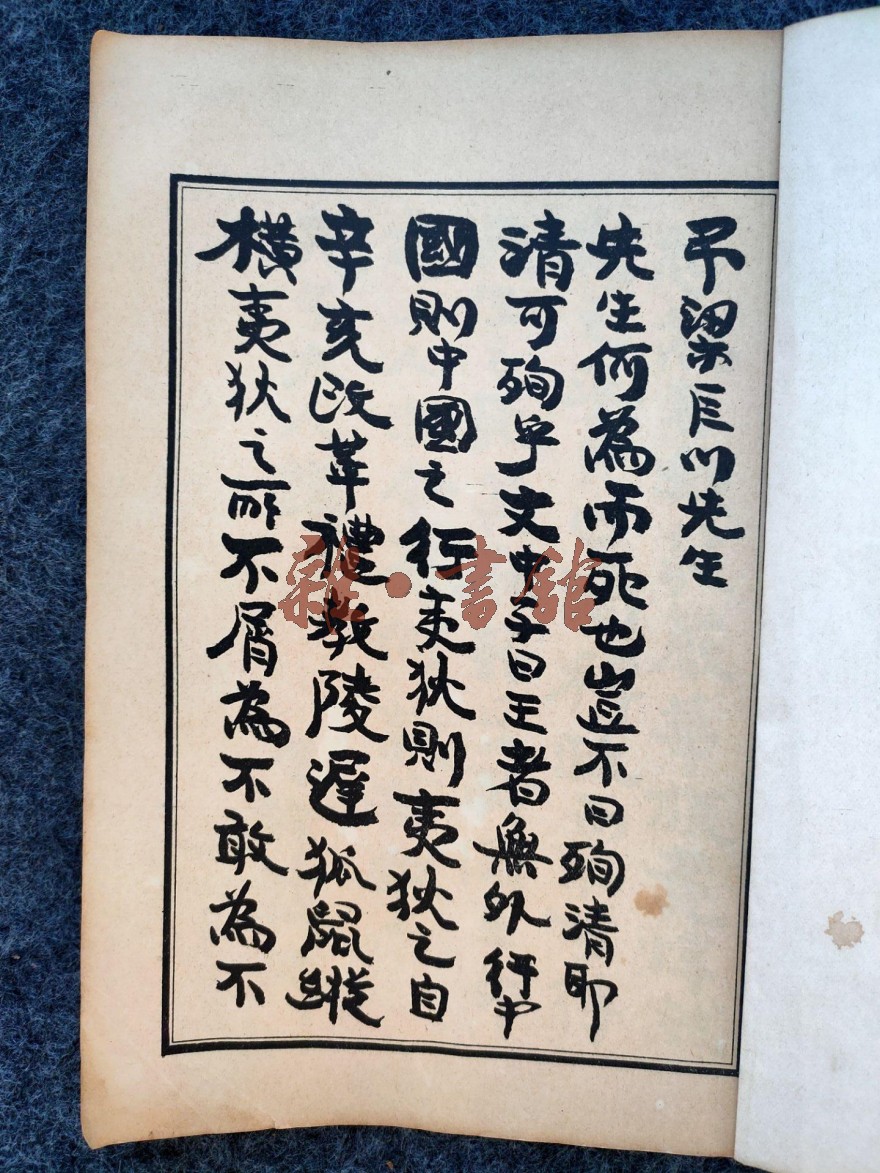 弔梁巨川先生
先生何為而死也豈不曰殉清耶
清可殉乎文中子曰王者無外行中
國則中國之行夷狄則夷狄之自
辛亥改革禮教陵遲狐鼠縱
橫夷狄之所不屑為不敢為不
雜·書舘